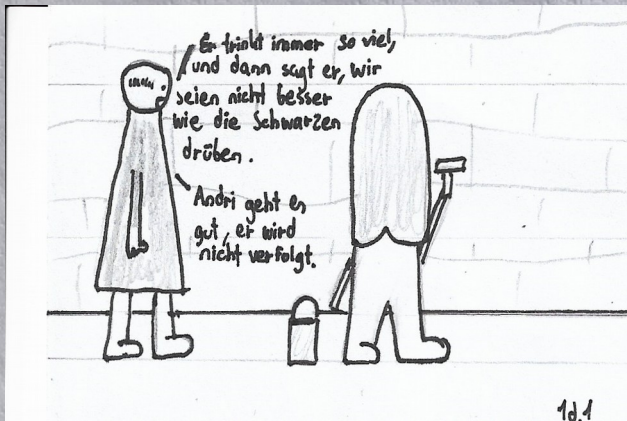 Er trinkt immer so viel,
und dann sagt er, wir
seien nicht besser
wie die Schwarzen
drüben.
Andri geht es
gut, er wird
nicht verfolgt.
1d.1